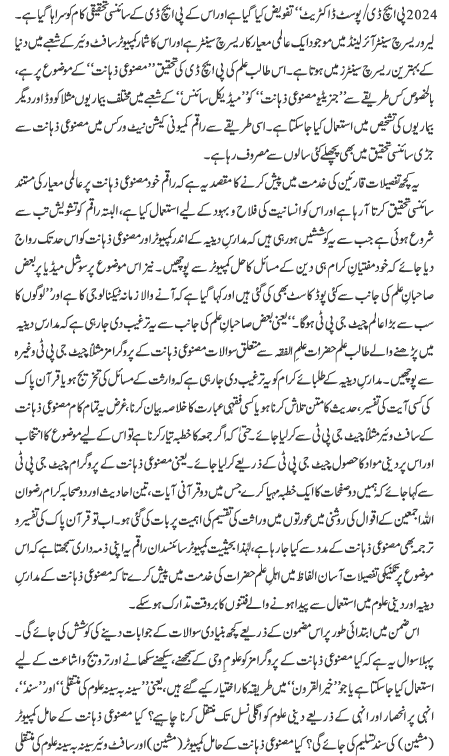 2024 پی ایچ ڈی/پوسٹ ڈاکٹریٹ‘‘ تفویض کیا گیا ہے اور اس کے پی ایچ ڈی کے سائنسی تحقیقی کام کو سراہا گیا ہے۔
لیرو ریسرچ سینٹر آئرلینڈ میں موجود ایک عالمی معیار کا ریسرچ سینٹر ہے اور اس کا شمار کمپیوٹر سافٹ ویئر کے شعبے میں دنیا
کے بہترین ریسرچ سینٹرز میں ہوتا ہے۔ اس طالب علم کی پی ایچ ڈی کی تحقیق ’’مصنوعی ذہانت‘‘ کے موضوع پر ہے،
بالخصوص کس طریقے سے ’’جنریٹیو مصنوعی ذہانت‘‘ کو ’’میڈیکل سائنس‘‘ کے شعبے میں مختلف بیماریوں مثلاً کووڈ اور دیگر
بیماریوں کی تشخیص میں استعمال کیا جاسکتا ہے۔ اسی طریقے سے راقم کمیونی کیشن نیٹ ورکس میں مصنوعی ذہانت سے
جڑی سائنسی تحقیق میں بھی پچھلے کئی سالوں سے مصروف رہا ہے۔
یہ کچھ تفصیلات قارئین کی خدمت میں پیش کرنے کا مقصد یہ ہے کہ راقم خود مصنوعی ذہانت پر عالمی معیار کی مستند
سائنسی تحقیق کرتا آرہا ہے اور اس کو انسانیت کی فلاح و بہبود کے لیے استعمال کیا ہے، البتہ راقم کو تشویش تب سے
شروع ہوئی ہے جب سے یہ کوششیں ہورہی ہیں کہ مدارسِ دینیہ کے اندر کمپیوٹر اور مصنوعی ذہانت کو اس حد تک رواج
دیا جائے کہ خود مفتیانِ کرام ہی دین کے مسائل کا حل کمپیوٹر سے پوچھیں۔ نیز اس موضوع پر سوشل میڈیا پر بعض
صاحبانِ علم کی جانب سے کئی پوڈ کاسٹ بھی کی گئی ہیں اور کہا گیا ہے کہ آنے والا زمانہ ٹیکنالوجی کا ہے اور ’’لوگوں کا
سب سے بڑا عالم چیٹ جی پی ٹی ہوگا۔‘‘ یعنی بعض صاحبانِ علم کی جانب سے یہ ترغیب دی جارہی ہے کہ مدارسِ دینیہ
میں پڑھنے والے طالب علم حضرات علم الفقہ سے متعلق سوالات مصنوعی ذہانت کے پروگرامز مثلاً چیٹ جی پی ٹی وغیرہ
سے پوچھیں۔ مدارسِ دینیہ کے طلبائے کرام کو یہ ترغیب دی جارہی ہے کہ وراثت کے مسائل کی تخریج ہو یا قرآن پاک
کی کسی آیت کی تفسیر، حدیث کا متن تلاش کرنا ہو یا کسی فقہی عبارت کا خلاصہ بیان کرنا، غرض یہ تمام کام مصنوعی ذہانت
کے سافٹ ویئر مثلاً چیٹ جی پی ٹی سے کرلیا جائے۔ حتیٰ کہ اگر جمعہ کا خطبہ تیار کرنا ہے تو اس کے لیے موضوع کا انتخاب
اور اس پر دینی مواد کا حصول چیٹ جی پی ٹی کے ذریعے کرلیا جائے۔ یعنی مصنوعی ذہانت کے پروگرام چیٹ جی پی ٹی
سے کہا جائے کہ ہمیں دو صفحات کا ایک خطبہ مہیا کرے جس میں دو قرآنی آیات، تین احادیث اور دو صحابہ کرام رضوان
اللہ اجمعین کے اقوال کی روشنی میں عورتوں میں وراثت کی تقسیم کی اہمیت پر بات کی گئی ہو۔ اب تو قرآن پاک کی تفسیر و
ترجمہ بھی مصنوعی ذہانت کے مدد سے کیا جارہا ہے، لہٰذا بحیثیت کمپیوٹر سائنسدان راقم یہ اپنی ذمہ داری سمجھتا ہے کہ اس
موضوع پر تکنیکی تفصیلات آسان الفاظ میں اہلِ علم حضرات کی خدمت میں پیش کرے تاکہ مصنوعی ذہانت کے مدارسِ
دینیہ اور دینی علوم میں استعمال سے پیدا ہونے والے فتنوں کا بروقت تدارک ہوسکے۔
اس ضمن میں ابتدائی طور پر اس مضمون کے ذریعے کچھ بنیادی سوالات کے جوابات دینے کی کوشش کی جائے گی۔
پہلا سوال یہ ہے کہ کیا مصنوعی ذہانت کے پروگرامز کو علومِ وحی کے سمجھنے، سیکھنے سکھانے اور ترویج و اشاعت کے لیے
استعمال کیا جاسکتا ہے یا جو ’’خیر القرون‘‘ میں طریقہ کار اختیار کیے گئے ہیں، یعنی ’’سینہ بہ سینہ علوم کی منتقلی‘‘ اور ’’سند‘‘،
انہی پر انحصار اور انہی کے ذریعے دینی علوم کو اگلی نسل تک منتقل کرنا چاہیے؟ کیا مصنوعی ذہانت کے حامل کمپیوٹر
(مشین) کی سند تسلیم کی جائے گی؟ کیا مصنوعی ذہانت کے حامل کمپیوٹر (مشین) اور سافٹ ویئر سینہ بہ سینہ علوم کی منتقلی